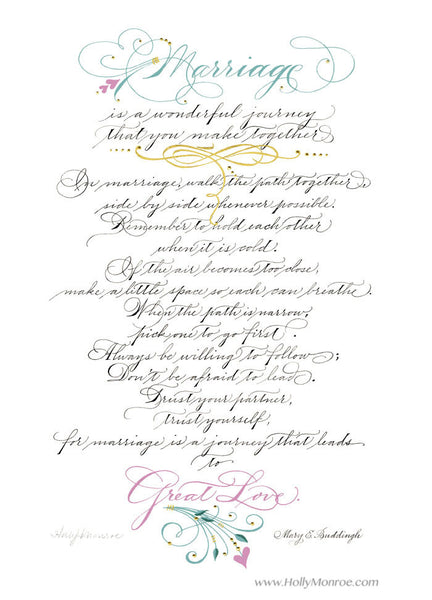 Marriage
is a wonderful journey
that you make together.
In marriage, walk the path together,
side by side whenever possible.
Remember to hold each other
when it is cold.
If the air becomes too close,
make a little space so each can breathe.
When the path is narrow,
pick one to go first.
Always be willing to follow;
Don't be afraid to lead.
Trust your partner,
trust yourself,
for marriage is a journey that leads
to
Great Love.
Holly Monroe
Mary E. Buddingh
www.HollyMonroe.com